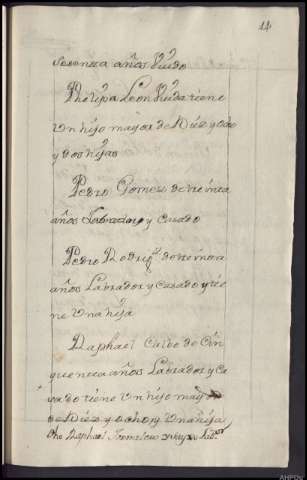 14
sesenta años Viudo
Phelipa Leon Viuda tiene
Un hijo maior de Diez y ocho
y dos hijas
Pedro Gomez de treinta
años Labrador y Casado
Pedro Rodrigz de treinta
años Labrador y Casado y tie
ne Una hija
Raphael Calbo de Cin
quenta años Labrador y Ca
sado tiene Un hijo maior
de Diez y ocho y Una hija
dho Raphael tiene
AHPOu